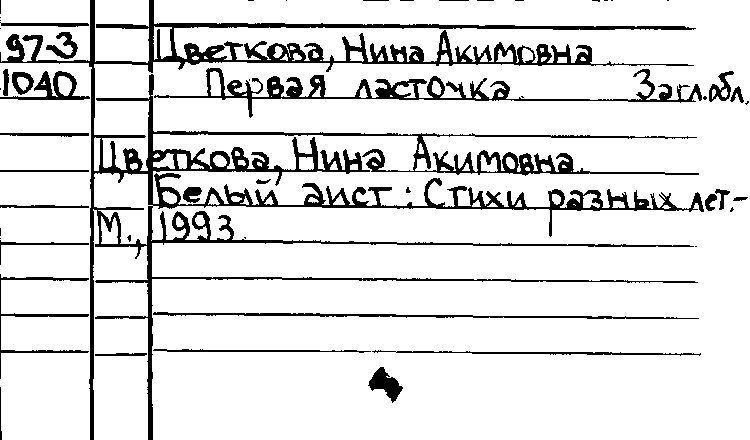 97-3 Цветкова, Нина Акимовна
1040 Первая ласточка. Загл.обл.
Цветкова, Нина Акимовна.
Белый аист : Стихи разных лет.-
М., 1993.